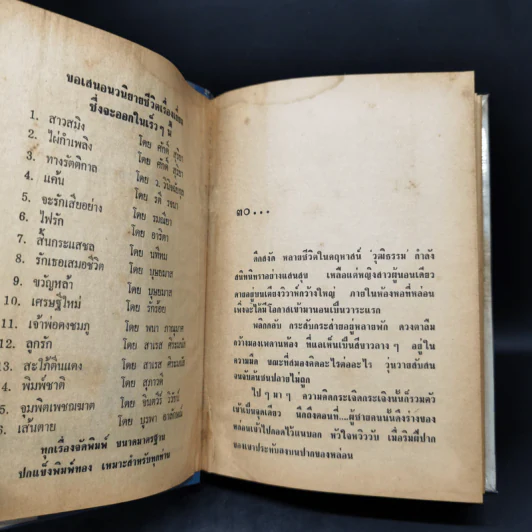 ขอเสนอนวนิยายชีวิตเรื่องเยี่ยม
ซึ่งจะออกในเร็วๆ นี้
1. สาวสมิง โดย ศักดิ์ สุริยา
2. ไผ่กำเพลิง โดย ศักดิ์ สุริยา
3. ทางรัตติกาล โดย ว. วินิจฉัยกุล
4. แค้น โดย รตี รจนา
5. จะรักเสียอย่าง โดย รมณียา
6. ไฟรัก โดย อาริตา
7. สิ้นกระแสชล โดย นทีทม
8. รักเธอเสมอชีวิต โดย บุษยมาส
9. ขวัญหล้า โดย บุษยมาส
10. เศรษฐีใหม่ โดย รักร้อย
11. เจ้าพ่อดงชมภู โดย พนา
12. ลูกรัก โดย สาเรส ศิระมนัส
13. สะใภ้ตีนแดง โดย สาเรส ศิระมนัส
4. พิมพ์ชาติ โดย สุภาวดี
5. ขุมพิตเพชฌฆาต โดย จินตวีร์ วิวัธน์
6. เส้นตาย โดย บูรพา อารัมภ์
ทุกเรื่องจัดพิมพ์ ขนาดมาตรฐาน
ปกแข็งพิมพ์ทอง เหมาะสำหรับทุกท่าน
๓๐...
ดึกสงัด หลายชีวิตในคฤหาสน์ วุฒิธรรม กำลัง
สนิทนิทราอย่างแสนสุข เหลือแต่หญิงสาวผู้นอนเดียว
ดายอยู่บนเตียงวิวาห์กว้างใหญ่ ภายในห้องหอที่หล่อน
เพิ่งจะได้มีโอกาสเข้ามานอนเป็นวาระแรก
พลิกกลับ กระสับกระส่ายอยู่หลายพัก ดวงตาลืม
กว้างมองเพดานห้อง ที่แลเห็นเป็นสีขาวลางๆ อยู่ใน
ความมืด ขณะที่สมองคิดอะไรต่ออะไร วุ่นวายสับสน
จนฉันต้นชนปลายไม่ถูก
ไปๆ มาๆ ความคิดกระเจิดกระเจิงนั้นก็รวมตัว
เข้าเป็นจุดเดียว นึกถึงตอนที่...ผู้ชายคนนั้นดึงร่างของ
หล่อนเข้าไปกอดไว้แนบอก หัวใจหวิววับ เมื่อริมฝีปาก
ของเขาประทับลงบนปากของหล่อน